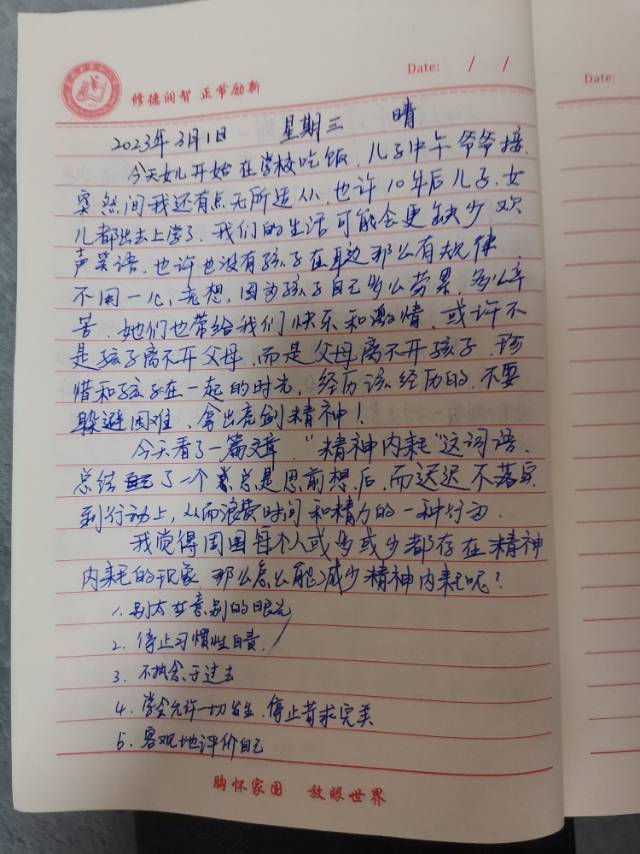 Date: / /
Date:
修德润智 正节励新
2023年3月1日 星期三 晴
今天女儿开始在学校吃饭，儿子中午爷爷接，
突然间我还有点无所适从，也许10年后儿子、女
儿都出去上学了，我们的生活可能会更缺少欢
声笑语，也许也没有孩子在耳边那么有规律
不闲一心，去想，因为孩子自己多么劳累，多么辛
苦，她们也带给我们快乐和激情，或许不
是孩子离不开父母，而是父母离不开孩子，珍
惜和孩子在一起的时光，经历该经历的，不要
躲避困难，拿出亮剑精神！
今天看了一篇文章，“精神内耗”这词语，
总结了一个总是思前想后，而迟迟不落实
到行动上，从而浪费时间和精力的一种行为。
我觉得周围每个人或多或少都存在精神
内耗的现象，那么怎么能减少精神内耗呢？
1、别太在意别的眼光
2、停止习惯性自责
3、不执念于过去
4、学会允许一切发生，停止苛求完美
5、客观地评价自己
胸怀家国 放眼世界